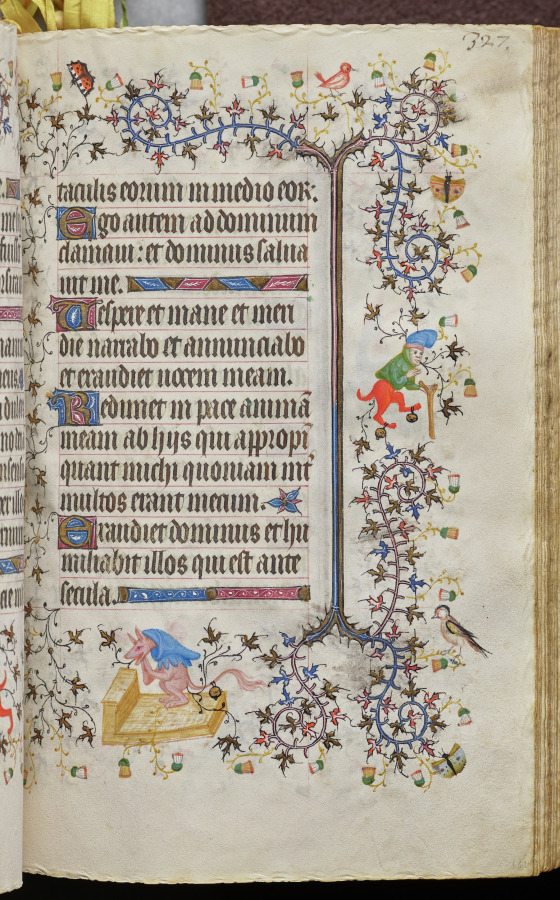 327.
taculis eorum in medio eor.
Ego autem ad dominum
clamaui: et dominus salua
uit me.
Vespere et mane et meri
die narrabo et annunciabo
et exaudiet uocem meam.
Redimet in pace animā
meam ab hijs qui appropi
quant michi quoniam int̄
multos erant mecum.
Exaudiet dominus et hu
miliabit illos qui est ante
secula.